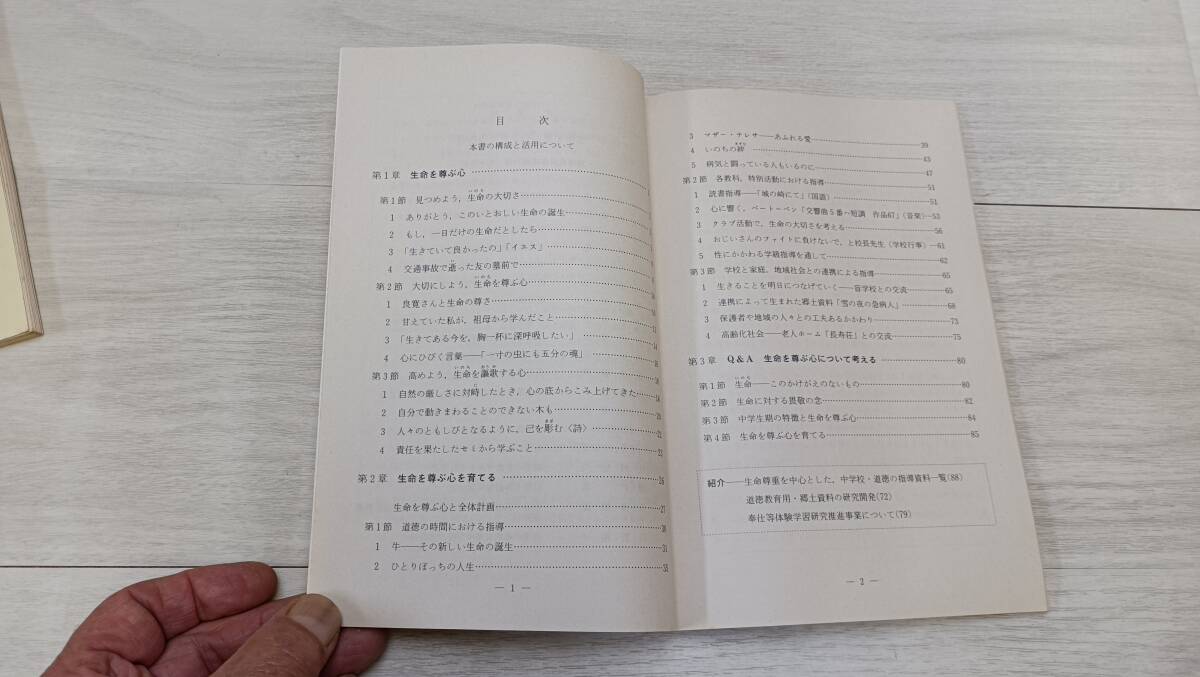 目　次
本書の構成と活用について
第1章　生命を尊ぶ心
第1節　見つめよう，生命の大切さ
1　ありがとう，このいとおしい生命の誕生
2　もし，一日だけの生命だとしたら
3　「生きていて良かったの」「イエス」
4　交通事故で逝った友の墓前で
第2節　大切にしよう，生命を尊ぶ心
1　良寛さんと生命の尊さ
2　甘えていた私が，祖母から学んだこと
3　「生きてある今を，胸一杯に深呼吸したい」
4　心にひびく言葉——「一寸の虫にも五分の魂」
第3節　高めよう，生命を謳歌する心
1　自然の厳しさに対峙したとき，心の底からこみ上げてきた
2　自分で動きまわることのできない木も
3　人々のともしびとなるように，己を彫む〈詩〉
4　責任を果たしたセミから学ぶこと
第2章　生命を尊ぶ心を育てる……26
生命を尊ぶ心と全体計画……27
第1節　道徳の時間における指導……30
1　牛——その新しい生命の誕生……31
2　ひとりぼっちの人生
— 1 —
3　マザー・テレサ——あふれる愛……39
4　いのちの絆……43
5　病気と闘っている人もいるのに……47
第2節　各教科，特別活動における指導……51
1　読書指導——「城の崎にて」（国語）……51
2　心に響く，ベートーベン「交響曲5番ハ短調　作品67」（音楽）…53
3　クラブ活動で，生命の大切さを考える……56
4　おじいさんのファイトに負けないで，と校長先生（学校行事）…61
5　性にかかわる学級指導を通して……62
第3節　学校と家庭，地域社会との連携による指導……65
1　生きることを明日につなげていく——盲学校との交流……65
2　連携によって生まれた郷土資料「雪の夜の急病人」……68
3　保護者や地域の人々との工夫あるかかわり……73
4　高齢化社会——老人ホーム「長寿荘」との交流……75
第3章　Q&A　生命を尊ぶ心について考える……80
第1節　生命——このかけがえのないもの……80
第2節　生命に対する畏敬の念……82
第3節　中学生期の特徴と生命を尊ぶ心……84
第4節　生命を尊ぶ心を育てる……85
紹介——生命尊重を中心とした，中学校・道徳の指導資料一覧(88)
道徳教育用・郷土資料の研究開発(72)
奉仕等体験学習研究推進事業について(79)
— 2 —